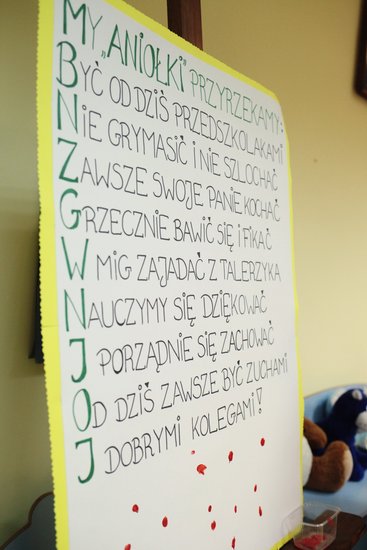 MY „ANIOŁKI” PRZYRZEKAMY:
BYĆ OD DZIŚ PRZEDSZKOLAKAMI
NIE GRYMASIĆ I NIE SZLOCHAĆ
ZAWSZE SWOJE PANIE KOCHAĆ
GRZECZNIE BAWIĆ SIĘ I FIKAĆ
W MIG ZAJADAĆ Z TALERZYKA
NAUCZYMY SIĘ DZIĘKOWAĆ
J PORZĄDNIE SIĘ ZACHOWAĆ
OD DZIŚ ZAWSZE BYĆ ZUCHAMI
J DOBRYMI KOLEGAMI!